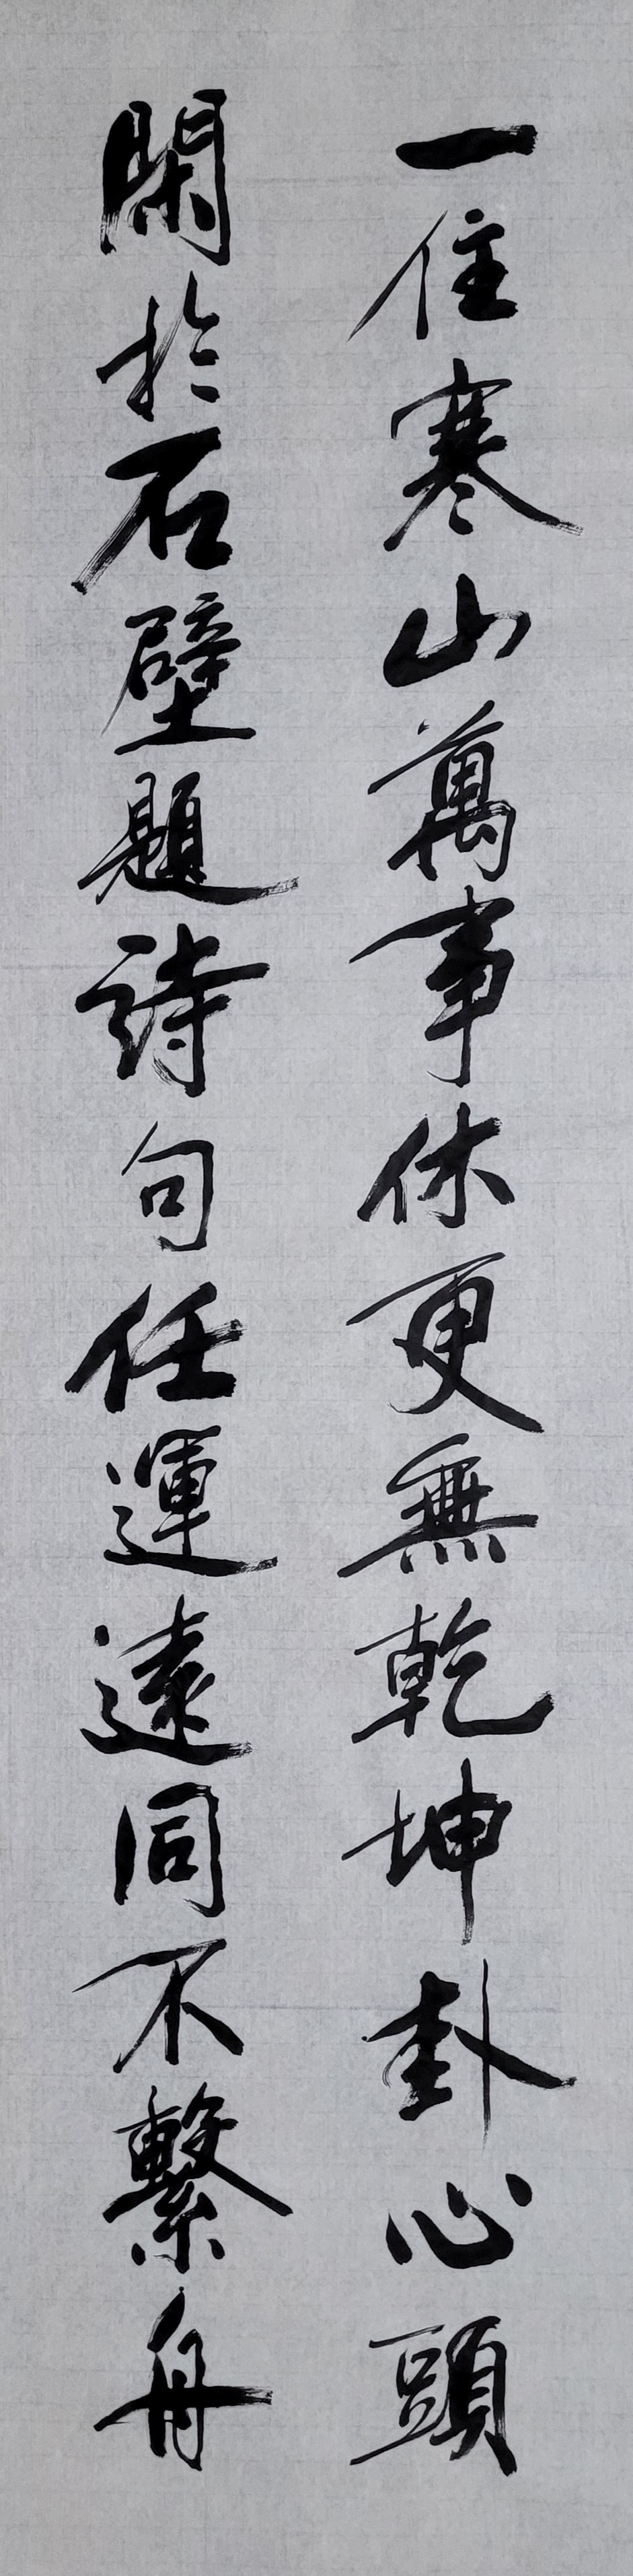 一住寒山萬事休更無乾坤卦心頭
閑於石壁題詩句任運遠同不繫舟